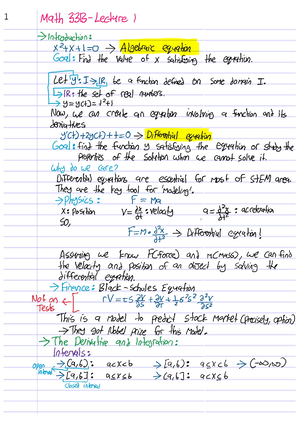 1
Math 336 - Lecture 1
→ Introduction:
x²+x+1=0 → Algebraic equation
Goal: Find the value of x satisfying the equation.
Let y: I → ℝ, be a function defined on some domain I.
→ ℝ: the set of real numbers.
→ y=y(t)=t²+1
Now, we can create an equation involving a function and its
derivatives
y'(t)+2y(t)+t=0 → Differential equation
Goal: find the function y satisfying the equation or study the
properties of the solution when we cannot solve it.
Why do we care?
Differential equations are essential for most of STEM area.
They are the key tool for "modeling".
→ Physics: F = ma
x: position v = dx/dt : velocity a = d²x/dt² : acceleration
so,
F=m·d²x/dt² → Differential equation!
Assuming we know F(force) and m(mass), we can find
the velocity and position of an object by solving the
differential equation.
→ Finance: Black-Scholes Equation
Not on Tests
This is a model to predict stock market (precisely, option)
→ They got Nobel prize for this model.
→ The Derivative and Integration:
Intervals:
open interval → (a,b): a<x<b → [a,b): a≤x<b → (-∞,∞)
→ [a,b]: a≤x≤b → (a,b]: a<x≤b
closed interval